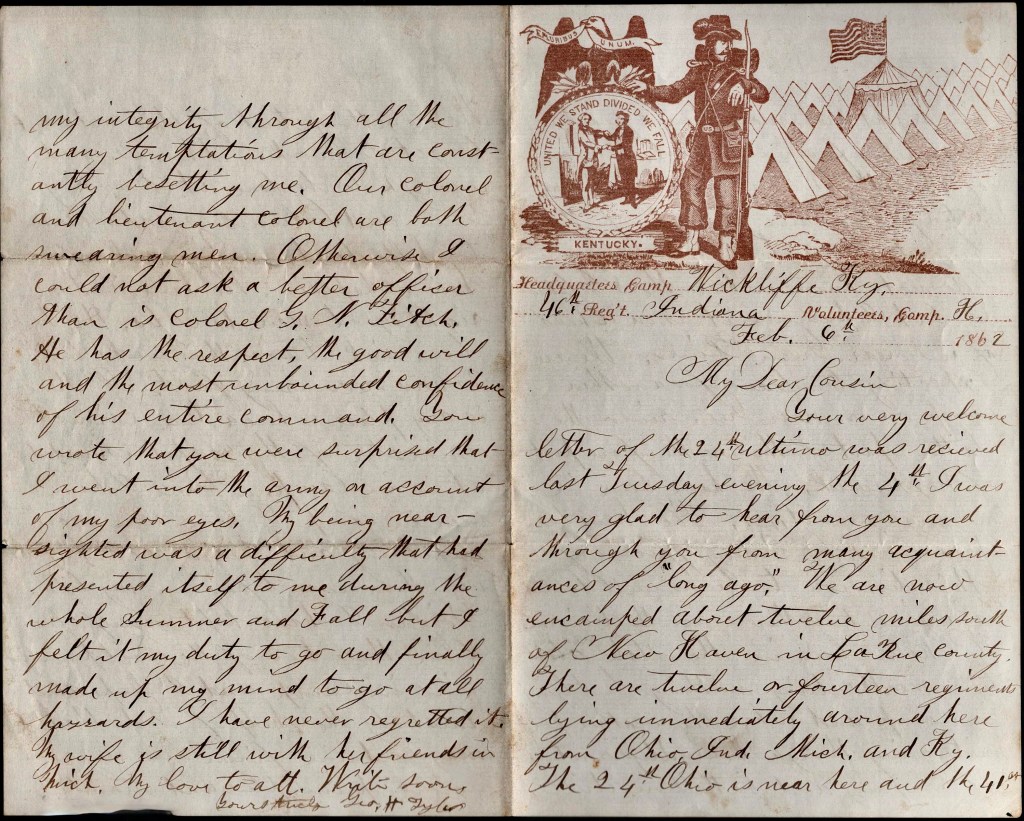 E PLURIBUS UNUM.
UNITED WE STAND DIVIDED WE FALL
KENTUCKY.
Headquarters Camp Wickliffe Ky.
46th Reg't. Indiana Volunteers, Comp. H.
Feb. 6th 1862
My Dear Cousin
Your very welcome
letter of the 24th ultimo was recieved
last Tuesday evening the 4th. I was
very glad to hear from you and
through you from many acquaint-
ances of "long ago." We are now
encamped about twelve miles south
of New Haven in La Rue county.
There are twelve or fourteen regiments
lying immediately around here
from Ohio, Ind. Mich. and Ky.
The 24th Ohio is near here and the 41st
my integrity through all the
many temptations that are const-
antly besetting me. Our colonel
and lieutenant colonel are both
swearing men. Otherwise I
could not ask a better officer
than is colonel G. N. Fitch.
He has the respect, the good will
and the most unbounded confidence
of his entire command. You
wrote that you were surprised that
I went into the army on account
of my poor eyes. My being near-
sighted was a difficulty that had
presented itself to me during the
whole Summer and Fall but I
felt it my duty to go and finally
made up my mind to go at all
hazzards. I have never regretted it.
My wife is still with her friends in
Mich. My love to all. Write soon.
Yours truly Geo. H Tyler